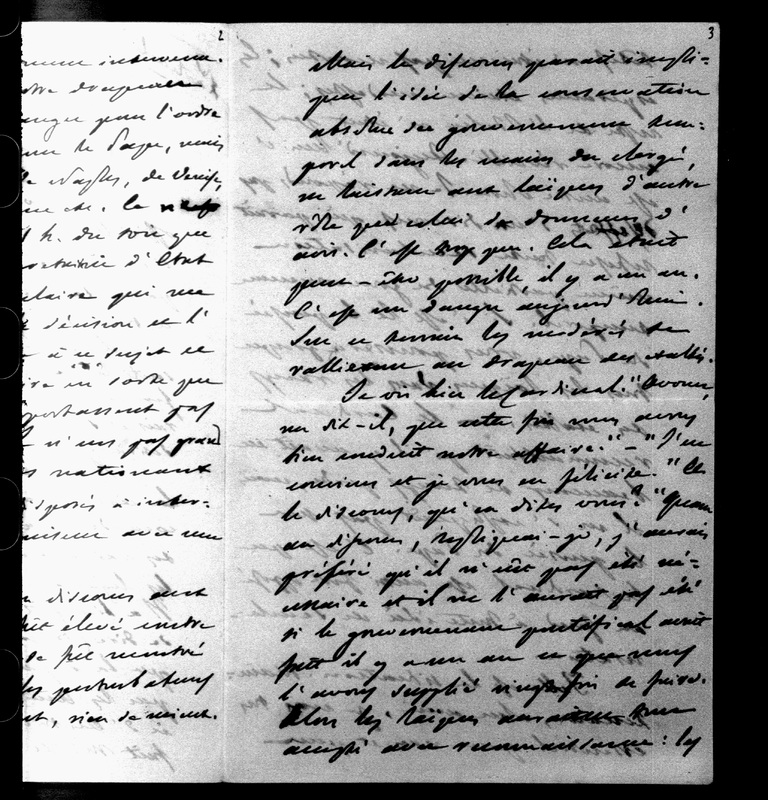 2
intervenu.
notre drapeau
pour l'ordre
le Pape, mais
Naples, de Venise,
etc. Ce
h. du soir que
d'Etat
qui me
décision et l'
à ce sujet et
en sorte que
pas
n'ont pas grand
nationaux
disposés à inter-
avec une
discours aux
élevé contre
montré
les perturbateurs
rien de mieux.
3
Mais le discours parait impli-
quer l'idée de la conservation
absolue du gouvernement tem-
porel dans les mains du clergé,
ne laissant aux laïques d'autre
rôle que celui de donneurs d'
avis. C'est trop peu. Cela était
peut-être possible il y a un an.
C'est un danger aujourd'hui.
Sur ce terrain les modérés se
rallieront au drapeau des exaltés.
Je vis hier le Cardinal. "Avouez,
me dit-il, que cette fois nous avons
bien conduit notre affaire." - "J'en
conviens et je vous en félicite." "Et
le discours, qu'en dites vous?" "Quant
au discours, répliquai-je, j'aurais
préféré qu'il n'eût pas été né-
cessaire et il ne l'aurait pas été
si le gouvernement pontifical avait
fait il y a un an ce que nous
l'avons supplié vingt fois de faire.
Alors les laïques auraient
accepté avec reconnaissance: les